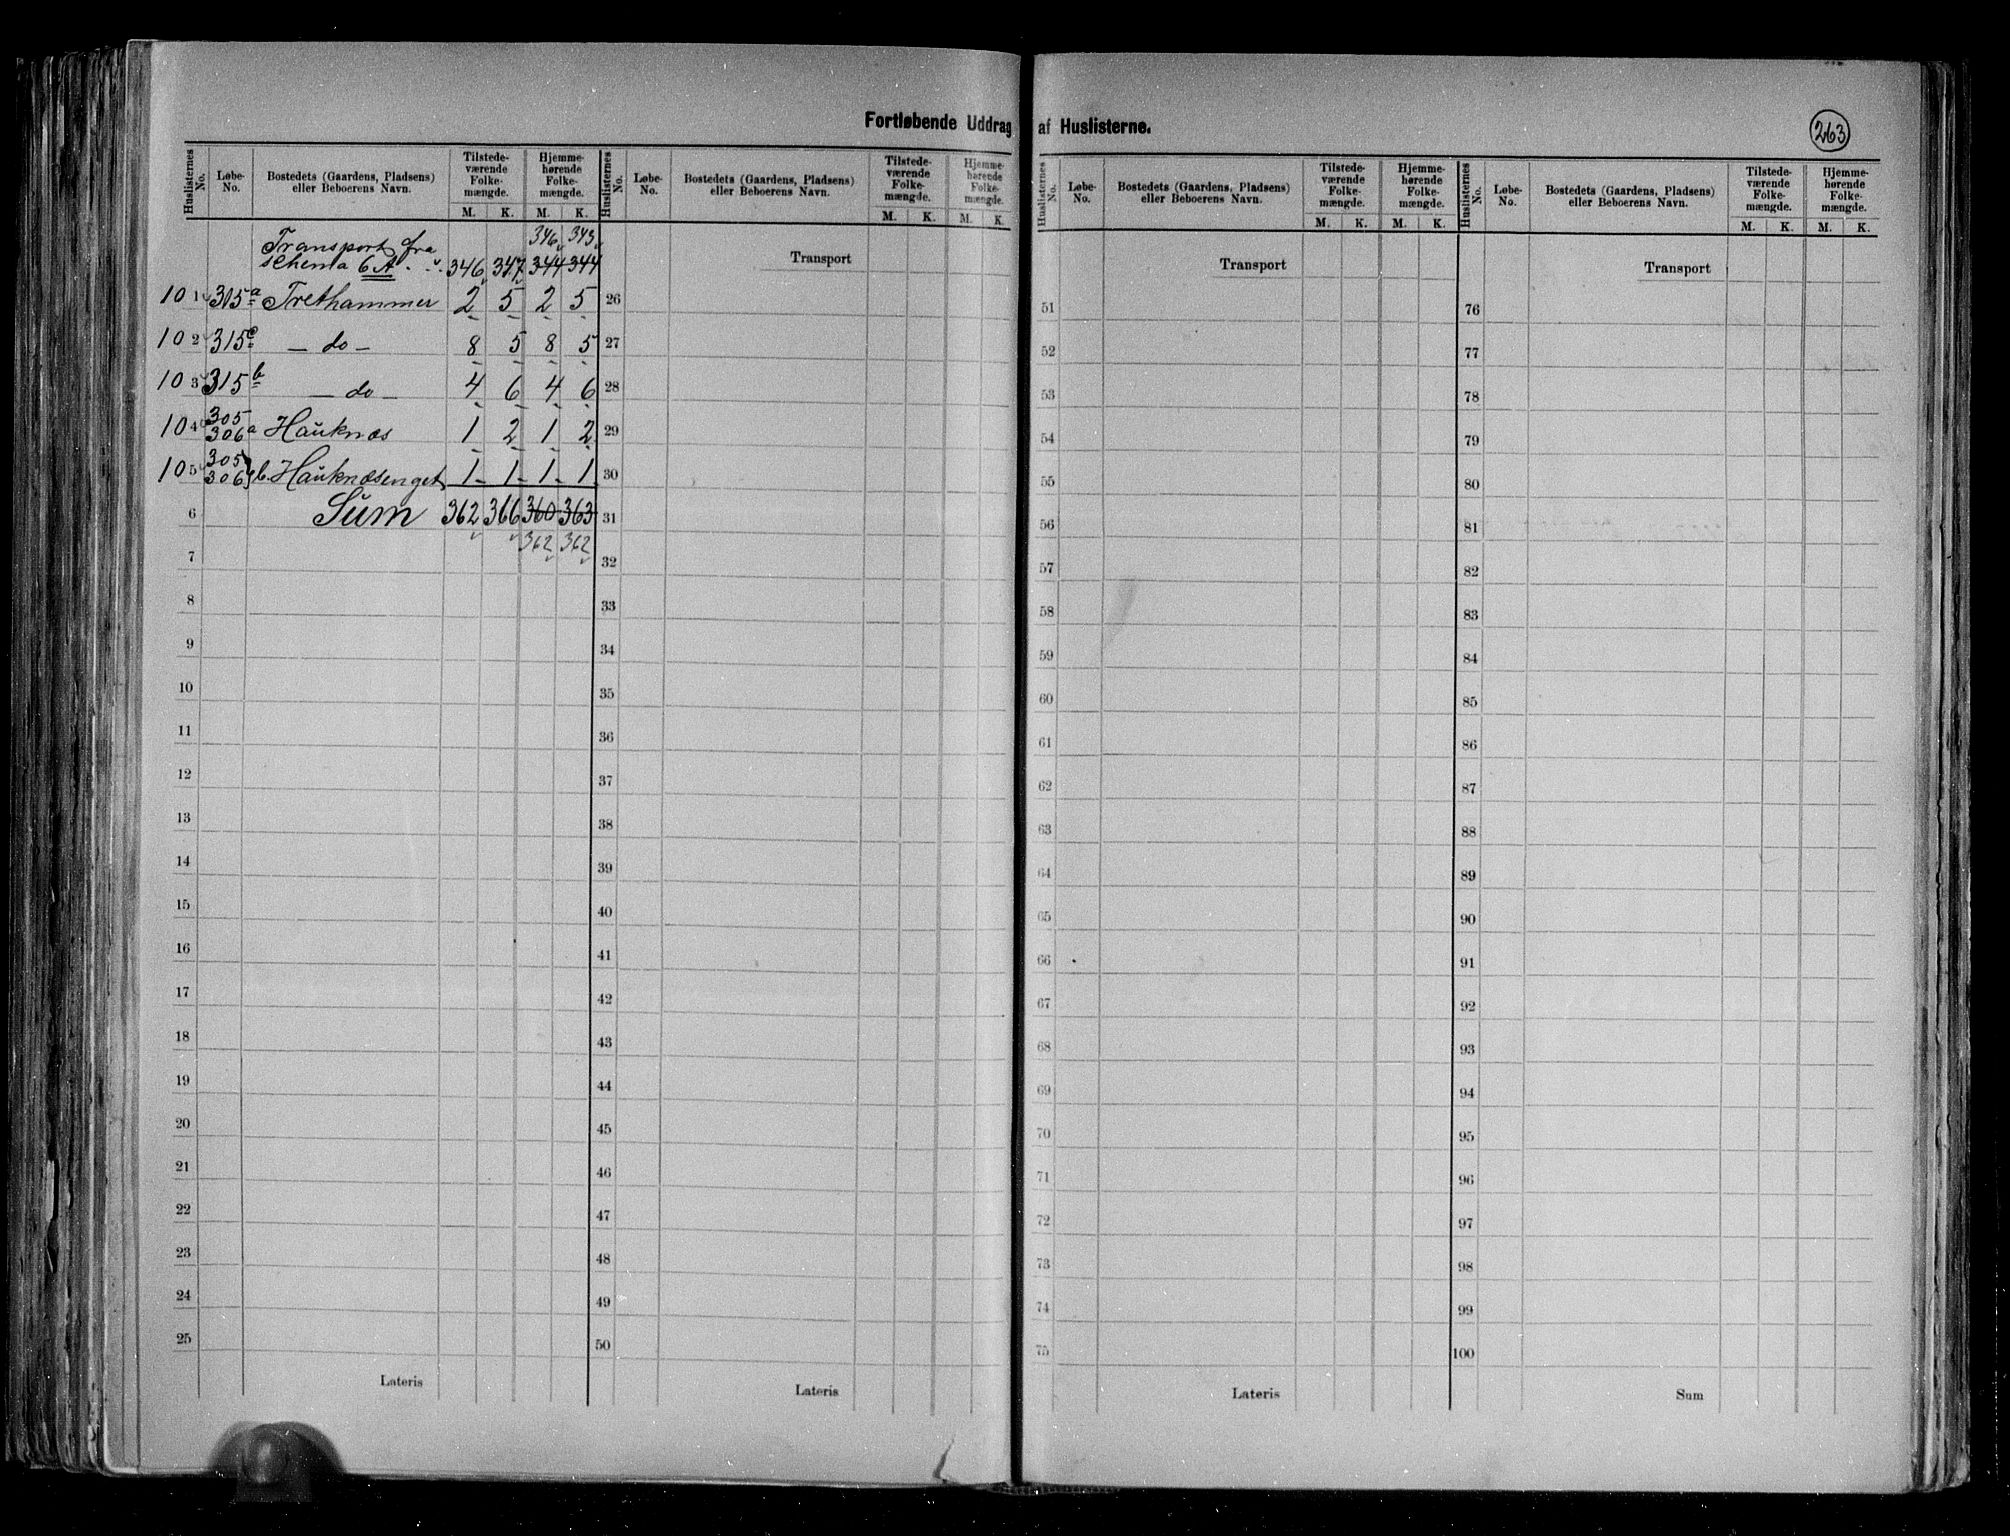 Fortløbende Uddrag af Huslisterne.
263
Huslisternes No. Løbe-No. Bostedets (Gaardens, Pladsens) eller Beboerens Navn. Tilstedeværende Folkemængde. M. K. Hjemmehørende Folkemængde. M. K.
346 343
Transport fra
schema 6 A. 346 347 344 344
101 315a Trethammer 2 5 2 5
102 315c — do — 8 5 8 5
103 315b — do — 4 6 4 6
104 305 306 a Hauknæs 1 2 1 2
105 305 306 } b. Hauknæsenget 1 1 1 1
6 Sum 362 366 360 363
362 362
7
8
9
10
11
12
13
14
15
16
17
18
19
20
21
22
23
24
25
Lateris
Huslisternes No. Løbe-No. Bostedets (Gaardens, Pladsens) eller Beboerens Navn. Tilstedeværende Folkemængde. M. K. Hjemmehørende Folkemængde. M. K.
Transport
26
27
28
29
30
31
32
33
34
35
36
37
38
39
40
41
42
43
44
45
46
47
48
49
50
Lateris
Huslisternes No. Løbe-No. Bostedets (Gaardens, Pladsens) eller Beboerens Navn. Tilstedeværende Folkemængde. M. K. Hjemmehørende Folkemængde. M. K.
Transport
51
52
53
54
55
56
57
58
59
60
61
62
63
64
65
66
67
68
69
70
71
72
73
74
75
Lateris
Huslisternes No. Løbe-No. Bostedets (Gaardens, Pladsens) eller Beboerens Navn. Tilstedeværende Folkemængde. M. K. Hjemmehørende Folkemængde. M. K.
Transport
76
77
78
79
80
81
82
83
84
85
86
87
88
89
90
91
92
93
94
95
96
97
98
99
100
Sum